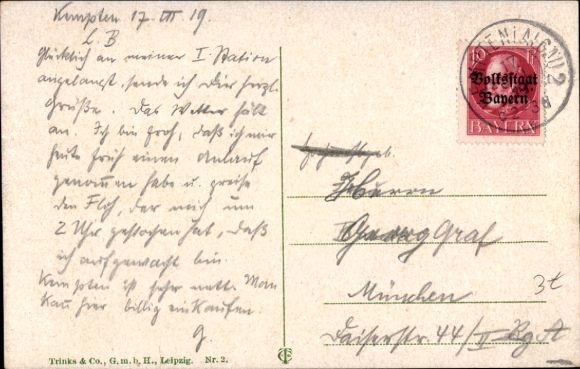 Kempten 17. VII 19.
L. B
Glücklich an meiner I Station
angelangt sende ich Dir herzl.
Grüße. Das Wetter hält
an. Ich bin froh, daß ich mir
heute früh einen Anlauf
genommen habe u. preise
den Floh, der mich um
2 Uhr gestochen hat, daß
ich aufgewacht bin.
Kempten ist sehr nett. Man
kan hier billig einkaufen.
G.
Trinks & Co., G. m. b. H., Leipzig. Nr. 2.
10
Volksstaat
Bayern
BAYERN
Herrn
Georg Graf
München
Kaiserstr. 44/II Rg. A
3t